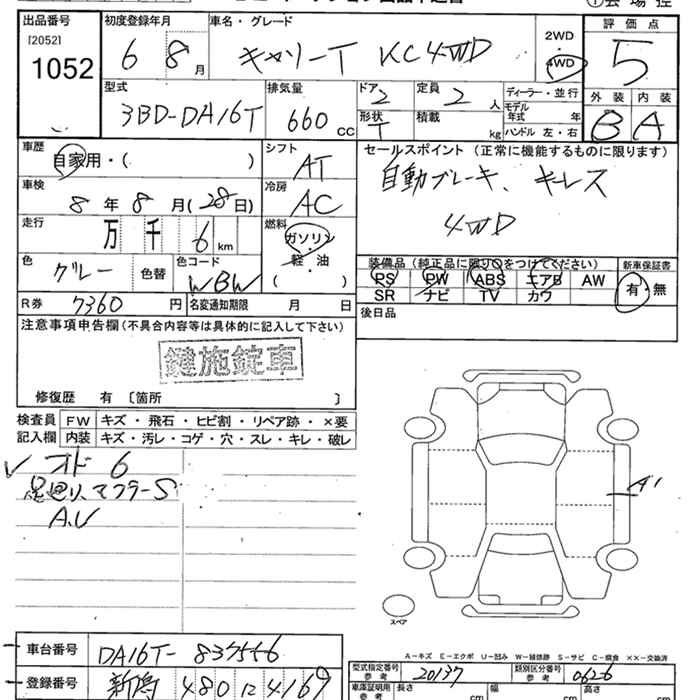 出品番号 初度登録年月 車名・グレード 2WD 評価点
[2052] 6 8月 キャリーT KC 4WD 4WD 5
1052
型式 排気量 ドア 定員 ディーラー・並行 外装 内装
3BD-DA16T 660 CC 2 2 人 モデル年式 年 B A
形状 T 積載 kg ハンドル 左・右
車歴 シフト セールスポイント (正常に機能するものに限ります)
自家用・( ) AT 自動ブレーキ、キーレス
車検 冷房 4WD
8年8月(28日) AC
走行 燃料
万 千 6 km ガソリン
軽・油
( )
装備品(純正品に限り○をつけてください) 新車保証書
色 グレー 色替 色コード WBW PS PW ABS エアB AW 有・無
SR ナビ TV カワ
R券 7360 円 名変通知期限 月 日 後日品
注意事項申告欄(不具合内容等は具体的に記入して下さい)
鍵施錠車
修復歴 有 〔箇所 〕
検査員 FW キズ・飛石・ヒビ割・リペア跡・×要
記入欄 内装 キズ・汚レ・コゲ・穴・スレ・キレ・破レ
オド 6
足廻り、マフラーS
A.U
A1
スペア
A-キズ E-エクボ U-凹み W-補修跡 S-サビ C-腐食 ××-交換済
車台番号 DA16T-837556
型式指定番号 参考 20137 類別区分番号 参考 0626
登録番号 新潟 480 に 4169
車庫証明用 参考 長さ cm 幅 cm 高さ cm